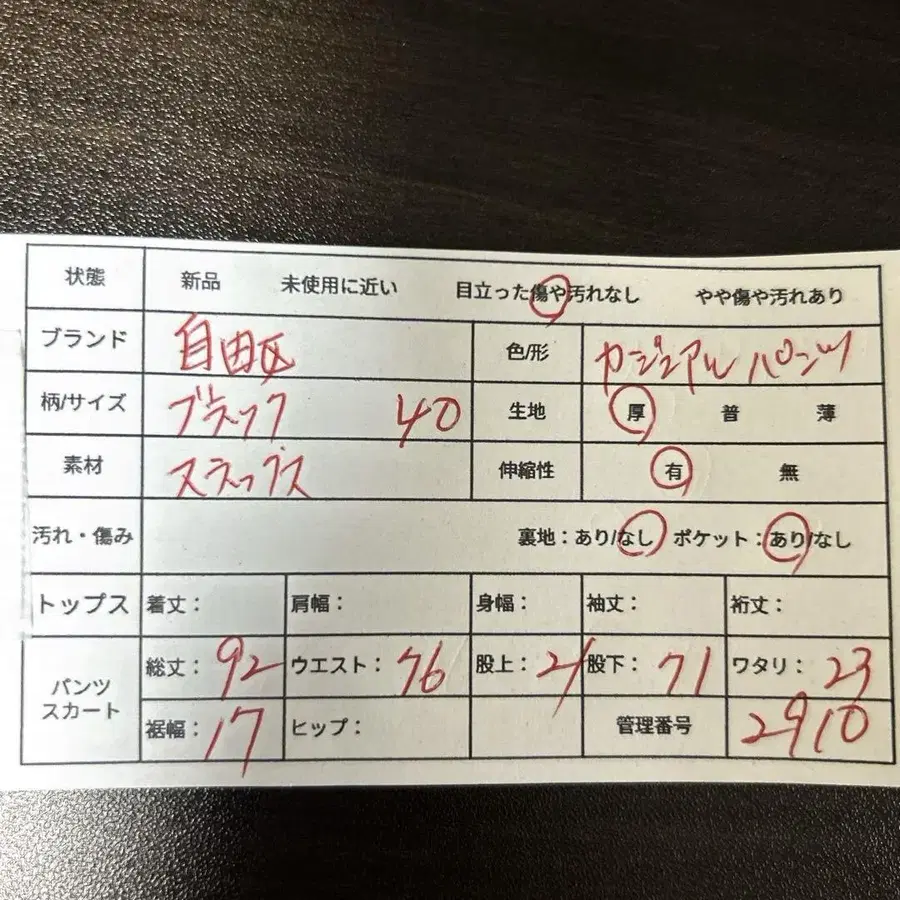 状態 新品 未使用に近い 目立った傷や汚れなし やや傷や汚れあり
ブランド 自由区 色/形 カジュアルパンツ
柄/サイズ ブラック 40 生地 厚 普 薄
素材 スラックス 伸縮性 有 無
汚れ・傷み 裏地：あり/なし ポケット：あり/なし
トップス 着丈： 肩幅： 身幅： 袖丈： 裄丈：
パンツ スカート 総丈：92 ウエスト：76 股上：21 股下：71 ワタリ：23
裾幅：17 ヒップ： 管理番号 2910